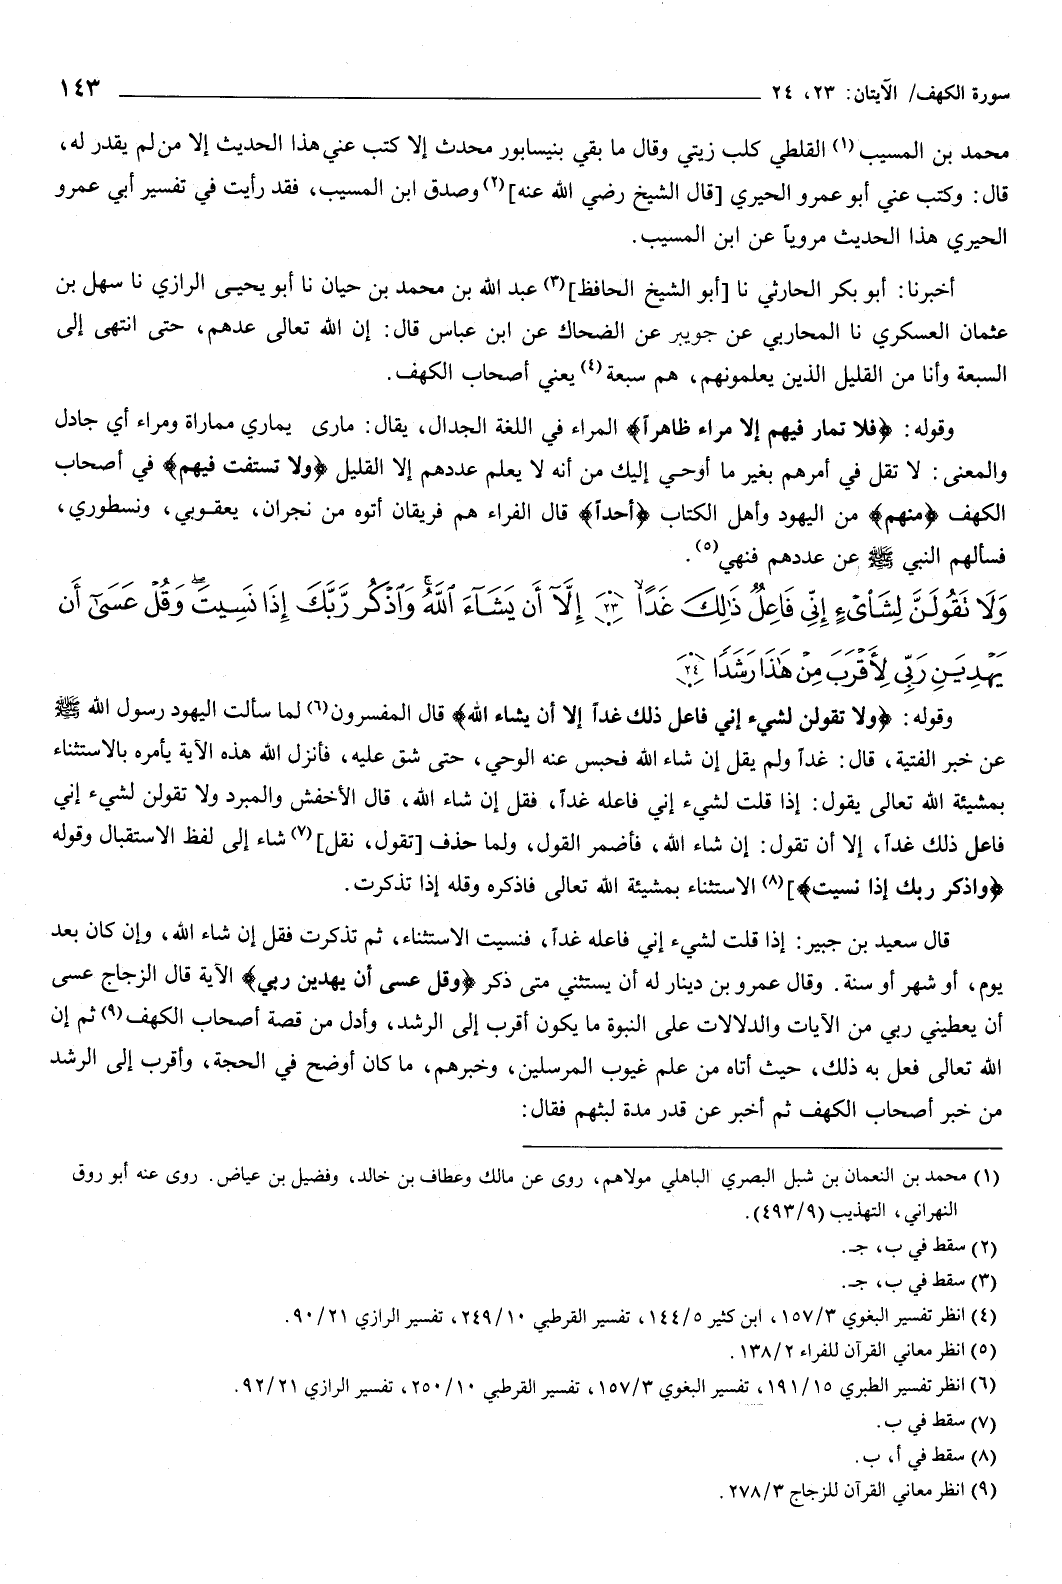 سورة الكهف/ الآيتان: ٢٣، ٢٤ ١٤٣
محمد بن المسيب(١) القلطي كلب زيتي وقال ما بقي بنيسابور محدث إلا كتب عني هذا الحديث إلا من لم يقدر له،
قال: وكتب عني أبو عمرو الحيري [قال الشيخ رضي الله عنه](٢) وصدق ابن المسيب، فقد رأيت في تفسير أبي عمرو
الحيري هذا الحديث مروياً عن ابن المسيب.
أخبرنا: أبو بكر الحارثي نا [أبو الشيخ الحافظ](٣) عبد الله بن محمد بن حيان نا أبو يحيى الرازي نا سهل بن
عثمان العسكري نا المحاربي عن جويبر عن الضحاك عن ابن عباس قال: إن الله تعالى عدهم، حتى انتهى إلى
السبعة وأنا من القليل الذين يعلمونهم، هم سبعة(٤) يعني أصحاب الكهف.
وقوله: ﴿فلا تمار فيهم إلا مراء ظاهراً﴾ المراء في اللغة الجدال، يقال: مارى يماري مماراة ومراء أي جادل
والمعنى: لا تقل في أمرهم بغير ما أوحي إليك من أنه لا يعلم عددهم إلا القليل ﴿ولا تستفت فيهم﴾ في أصحاب
الكهف ﴿منهم﴾ من اليهود وأهل الكتاب ﴿أحداً﴾ قال الفراء هم فريقان أتوه من نجران، يعقوبي، ونسطوري،
فسألهم النبي ﷺ عن عددهم فنهي(٥).
وَلَا تَقُولَنَّ لِشَاْىْءٍ إِنِّي فَاعِلٌ ذَٰلِكَ غَدًا ۝٢٣ إِلَّآ أَن يَشَآءَ ٱللَّهُ ۚ وَٱذْكُر رَّبَّكَ إِذَا نَسِيتَ وَقُلْ عَسَىٰٓ أَن
يَهْدِيَنِ رَبِّي لِأَقْرَبَ مِنْ هَٰذَا رَشَدًا ۝٢٤
وقوله: ﴿ولا تقولن لشيء إني فاعل ذلك غداً إلا أن يشاء الله﴾ قال المفسرون(٦) لما سألت اليهود رسول الله ﷺ
عن خبر الفتية، قال: غداً ولم يقل إن شاء الله فحبس عنه الوحي، حتى شق عليه، فأنزل الله هذه الآية يأمره بالاستثناء
بمشيئة الله تعالى يقول: إذا قلت لشيء إني فاعله غداً، فقل إن شاء الله، قال الأخفش والمبرد ولا تقولن لشيء إني
فاعل ذلك غداً، إلا أن تقول: إن شاء الله، فأضمر القول، ولما حذف [تقول، نقل](٧) شاء إلى لفظ الاستقبال وقوله
﴿واذكر ربك إذا نسيت﴾](٨) الاستثناء بمشيئة الله تعالى فاذكره وقله إذا تذكرت.
قال سعيد بن جبير: إذا قلت لشيء إني فاعله غداً، فنسيت الاستثناء، ثم تذكرت فقل إن شاء الله، وإن كان بعد
يوم، أو شهر أو سنة. وقال عمرو بن دينار له أن يستثني متى ذكر ﴿وقل عسى أن يهدين ربي﴾ الآية قال الزجاج عسى
أن يعطيني ربي من الآيات والدلالات على النبوة ما يكون أقرب إلى الرشد، وأدل من قصة أصحاب الكهف(٩) ثم إن
الله تعالى فعل به ذلك، حيث أتاه من علم غيوب المرسلين، وخبرهم، ما كان أوضح في الحجة، وأقرب إلى الرشد
من خبر أصحاب الكهف ثم أخبر عن قدر مدة لبثهم فقال:
(١) محمد بن النعمان بن شبل البصري الباهلي مولاهم، روى عن مالك وعطاف بن خالد، وفضيل بن عياض. روى عنه أبو روق
النهراني، التهذيب (٤٩٣/٩).
(٢) سقط في ب، جـ.
(٣) سقط في ب، جـ.
(٤) انظر تفسير البغوي ١٥٧/٣، ابن كثير ١٤٤/٥، تفسير القرطبي ٢٤٩/١٠، تفسير الرازي ٩٠/٢١.
(٥) انظر معاني القرآن للفراء ١٣٨/٢.
(٦) انظر تفسير الطبري ١٩١/١٥، تفسير البغوي ١٥٧/٣، تفسير القرطبي ٢٥٠/١٠، تفسير الرازي ٩٢/٢١.
(٧) سقط في ب.
(٨) سقط في أ، ب.
(٩) انظر معاني القرآن للزجاج ٢٧٨/٣.